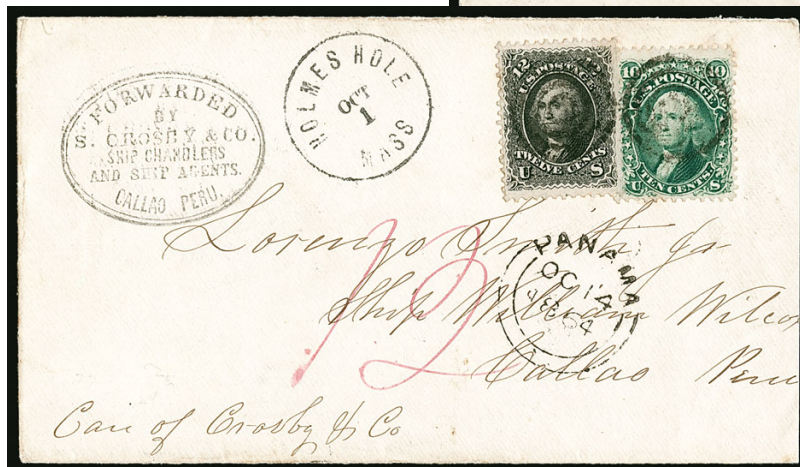 FORWARDED
BY
S. CROSBY & CO.
SHIP CHANDLERS
AND SHIP AGENTS.
CALLAO PERU.
HOLMES HOLE
OCT
1
MASS
12 12
U.S. POSTAGE
TWELVE CENTS
U S
10 10
U.S. POSTAGE
TEN CENTS
U S
Lorenzo Smith Jr
Ship William Wilcox
Callao Peru
12
PANAMA
OC 14
64
Care of Crosby & Co